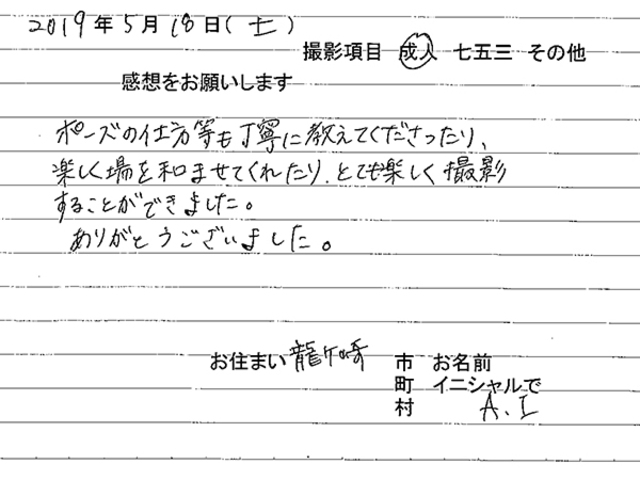 2019年5月18日(土)
撮影項目 成人 七五三 その他
感想をお願いします
ポーズの仕方等も丁寧に教えてくださったり、
楽しく場を和ませてくれたり、とても楽しく撮影
することができました。
ありがとうございました。
お住まい 龍ケ崎 市 お名前
町 イニシャルで
村 A.I